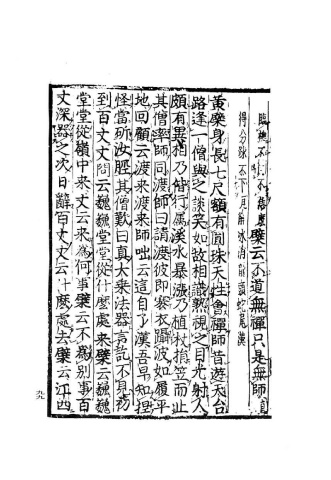 臨機不得不恁麼檗云不道無禪只是無師直
得分疎不下瓦解氷消龍頭蛇尾漢
黃檗身長七尺額有圓珠天性會禪師昔遊天台
路逢一僧與之談笑如故相識熟視之目光射人
頗有異相乃偕行屬溪水暴漲乃植杖捐笠而止
其僧率師同渡師曰請渡彼即褰衣躡波如履平
地回顧云渡來渡來師咄云這自了漢吾早知捏
怪當斫汝脛其僧歎曰真大乘法器言訖不見初
到百丈丈問云巍巍堂堂從什麼處來檗云巍巍
堂堂從嶺中來丈云來為何事檗云不為別事百
丈深器之次日辭百丈丈云什麼處去檗云江西
九九